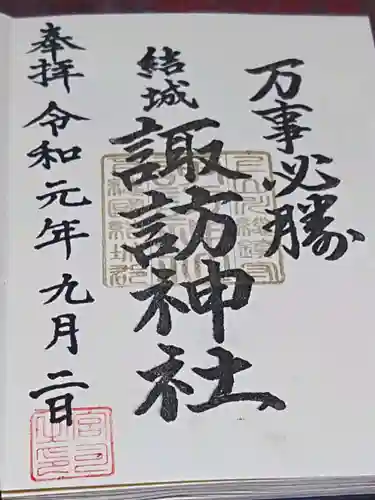 万事必勝
結城
諏訪神社
奉拝 令和元年九月二日